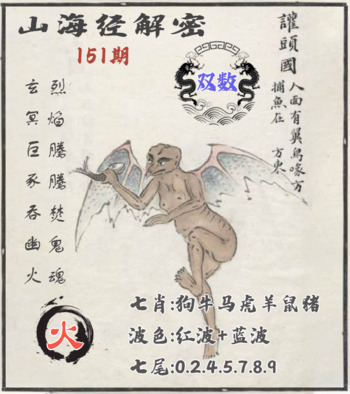 山海经解密
151期
双数
讙頭國
人面有翼鳥喙方
捕魚在方東
烈焰騰騰焚鬼魂
玄冥巨豕吞幽火
火
七肖:狗牛马虎羊鼠猪
波色:红波+蓝波
七尾:0.2.4.5.7.8.9